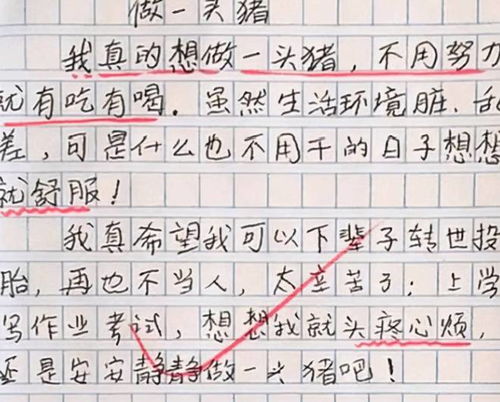 做一头猪
我真的想做一头猪，不用努力
就有吃有喝．虽然生活环境脏、乱
差，可是什么也不用干的日子想想
就舒服！
我真希望我可以下辈子转世投
胎，再也不当人，太辛苦了；上学
写作业考试，想想我就头疼心烦，
还是安安静静做一头猪吧！